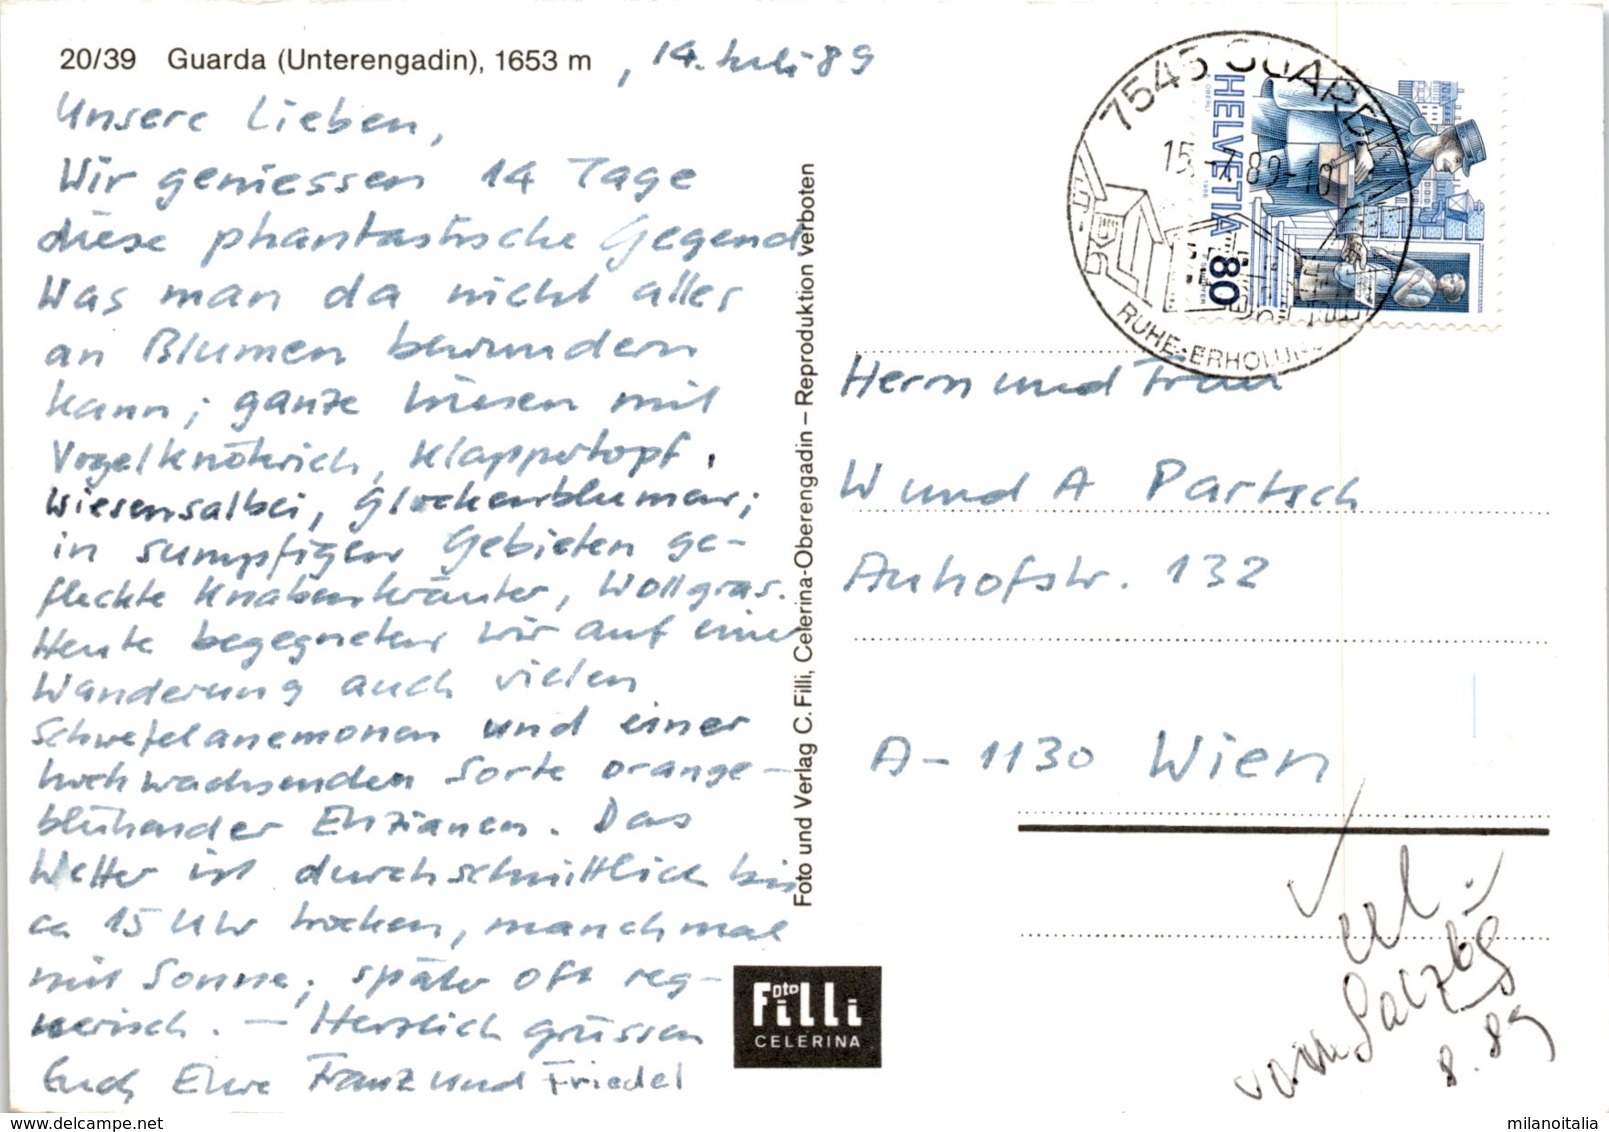 20/39 Guarda (Unterengadin), 1653 m , 14. Juli 89
Unsere Lieben,
Wir geniessen 14 Tage
diese phantastische Gegend
Was man da nicht alles
an Blumen bewundern
kann; ganze Wiesen mit
Vogelknöterich, Klappertopf,
Wiesensalbei, Glockenblumen;
in sumpfigen Gebieten ge-
fleckte Knabenkräuter, Wollgras.
Heute begegneten wir auf einer
Wanderung auch vielen
Schwefelanemonen und einer
hochwachsenden Sorte orange-
blühender Enzianen. Das
Wetter ist durchschnittlich bis
ca 15 Uhr trocken, manchmal
mit Sonne; später oft reg-
nerisch. — Herzlich grüssen
Euch Eure Franz und Friedel
Foto und Verlag C. Filli, Celerina-Oberengadin – Reproduktion verboten
Foto Filli
CELERINA
7545 GUARDA
15.-7.89-10
RUHE-ERHOLUNG
HELVETIA 80
OBERLI
1986
Herrn und Frau
W und A Partsch
Auhofstr. 132
A-1130 Wien
tel.
von Salzbg
8.89
milanoitalia